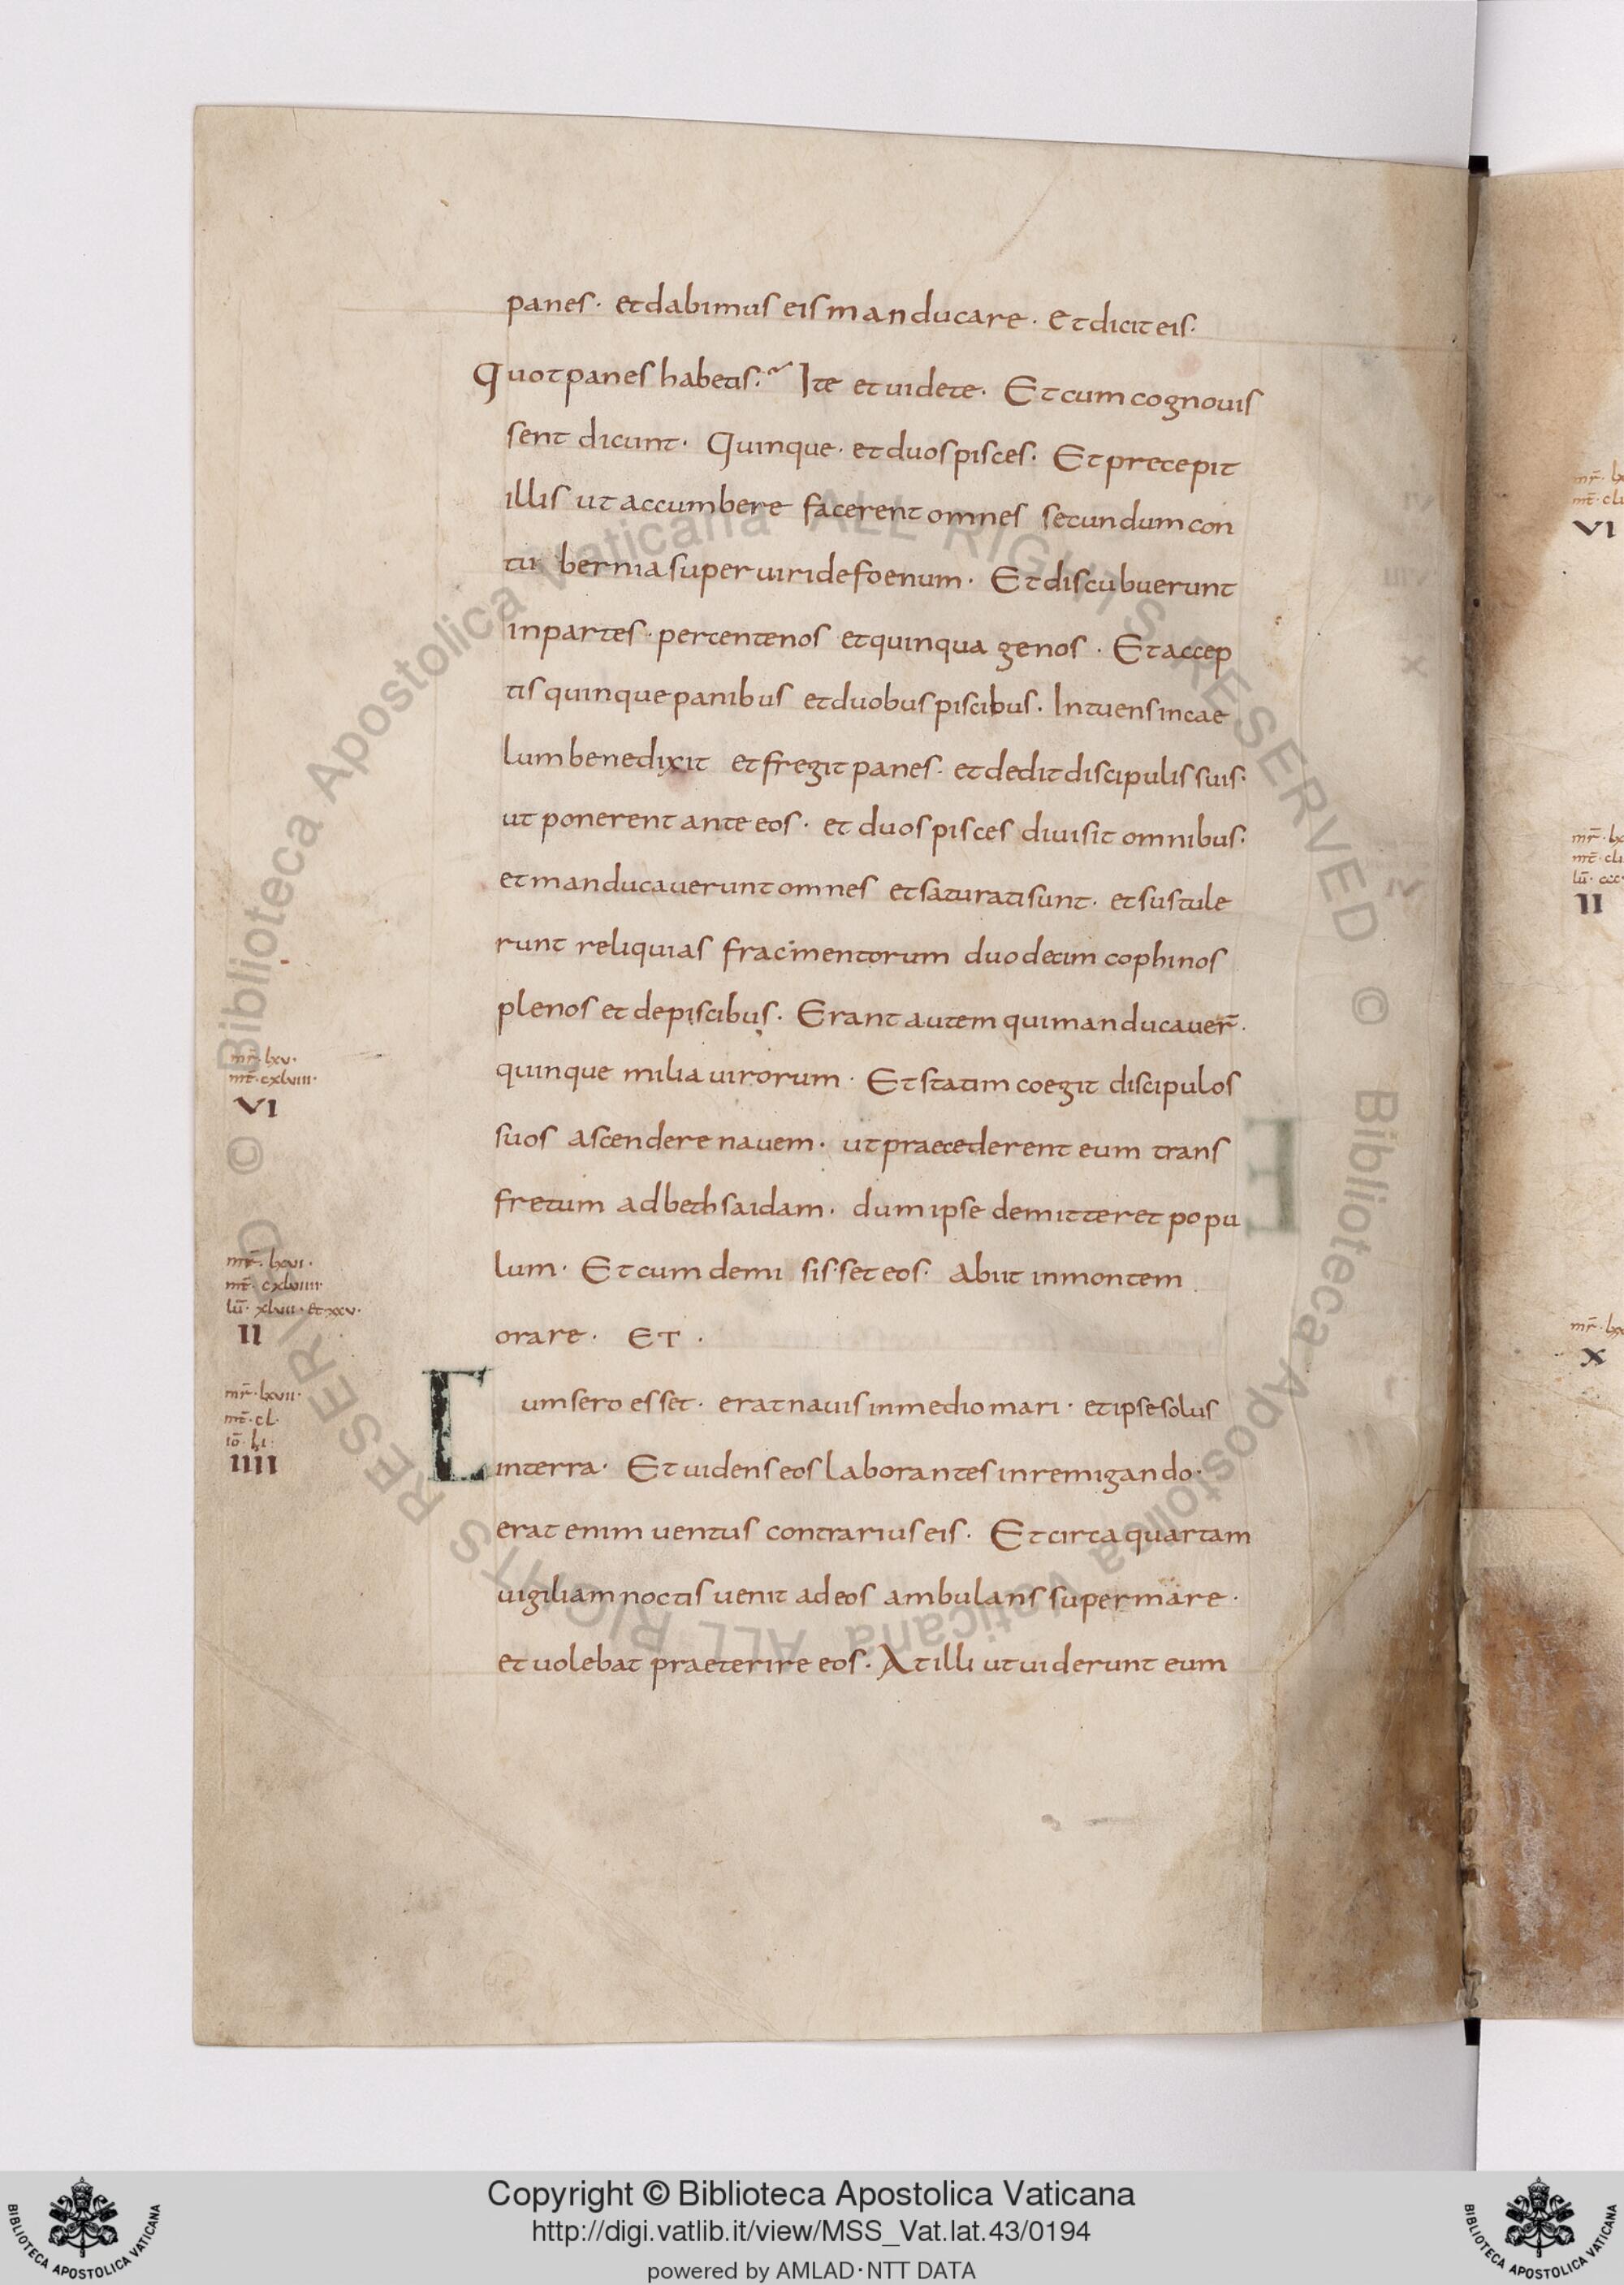 panes · et dabimus eis manducare · Et dicit eis ·
Quot panes habetis? Ite et uidete · Et cum cognouis
sent dicunt · Quinque · et duos pisces · Et precepit
illis ut accumbere facerent omnes secundum con
tu bernia super uiride foenum · Et discubuerunt
in partes · per centenos et quinqua genos · Et accep
tis quinque panibus et duobus piscibus · Intuens in cae
lum benedixit et fregit panes · et dedit discipulis suis ·
ut ponerent ante eos · et duos pisces diuisit omnibus ·
et manducauerunt omnes et saturati sunt · et sustule
runt reliquias fracmentorum duodecim cophinos
plenos et de piscibus · Erant autem qui manducauer̄ ·
quinque milia uirorum · Et statim coegit discipulos
suos ascendere nauem · ut praecederent eum trans
fretum ad bethsaidam · dum ipse demitteret popu
lum · Et cum demi sisset eos · Abiit in montem
orare · ET ·
Cum sero esset · erat nauis in medio mari · et ipse solus
in terra · Et uidens eos laborantes in remigando ·
erat enim uentus contrarius eis · Et circa quartam
uigiliam noctis uenit ad eos ambulans super mare ·
et uolebat praeterire eos · At illi ut uiderunt eum
mr̄ · lxv ·
mt̄ · cxlviii ·
VI
mr̄ · lxvi ·
mt̄ · cxlviiii ·
lū · xlvii · et xxv ·
II
mr̄ · lxvii ·
mt̄ · cl ·
iō · li ·
IIII
VI
II
X
© Biblioteca Apostolica Vaticana ALL RIGHTS RESERVED © Biblioteca Apostolica Vaticana ALL RIGHTS RESERVED
Copyright © Biblioteca Apostolica Vaticana
http://digi.vatlib.it/view/MSS_Vat.lat.43/0194
powered by AMLAD·NTT DATA
BIBLIOTECA APOSTOLICA VATICANA
BIBLIOTECA APOSTOLICA VATICANA